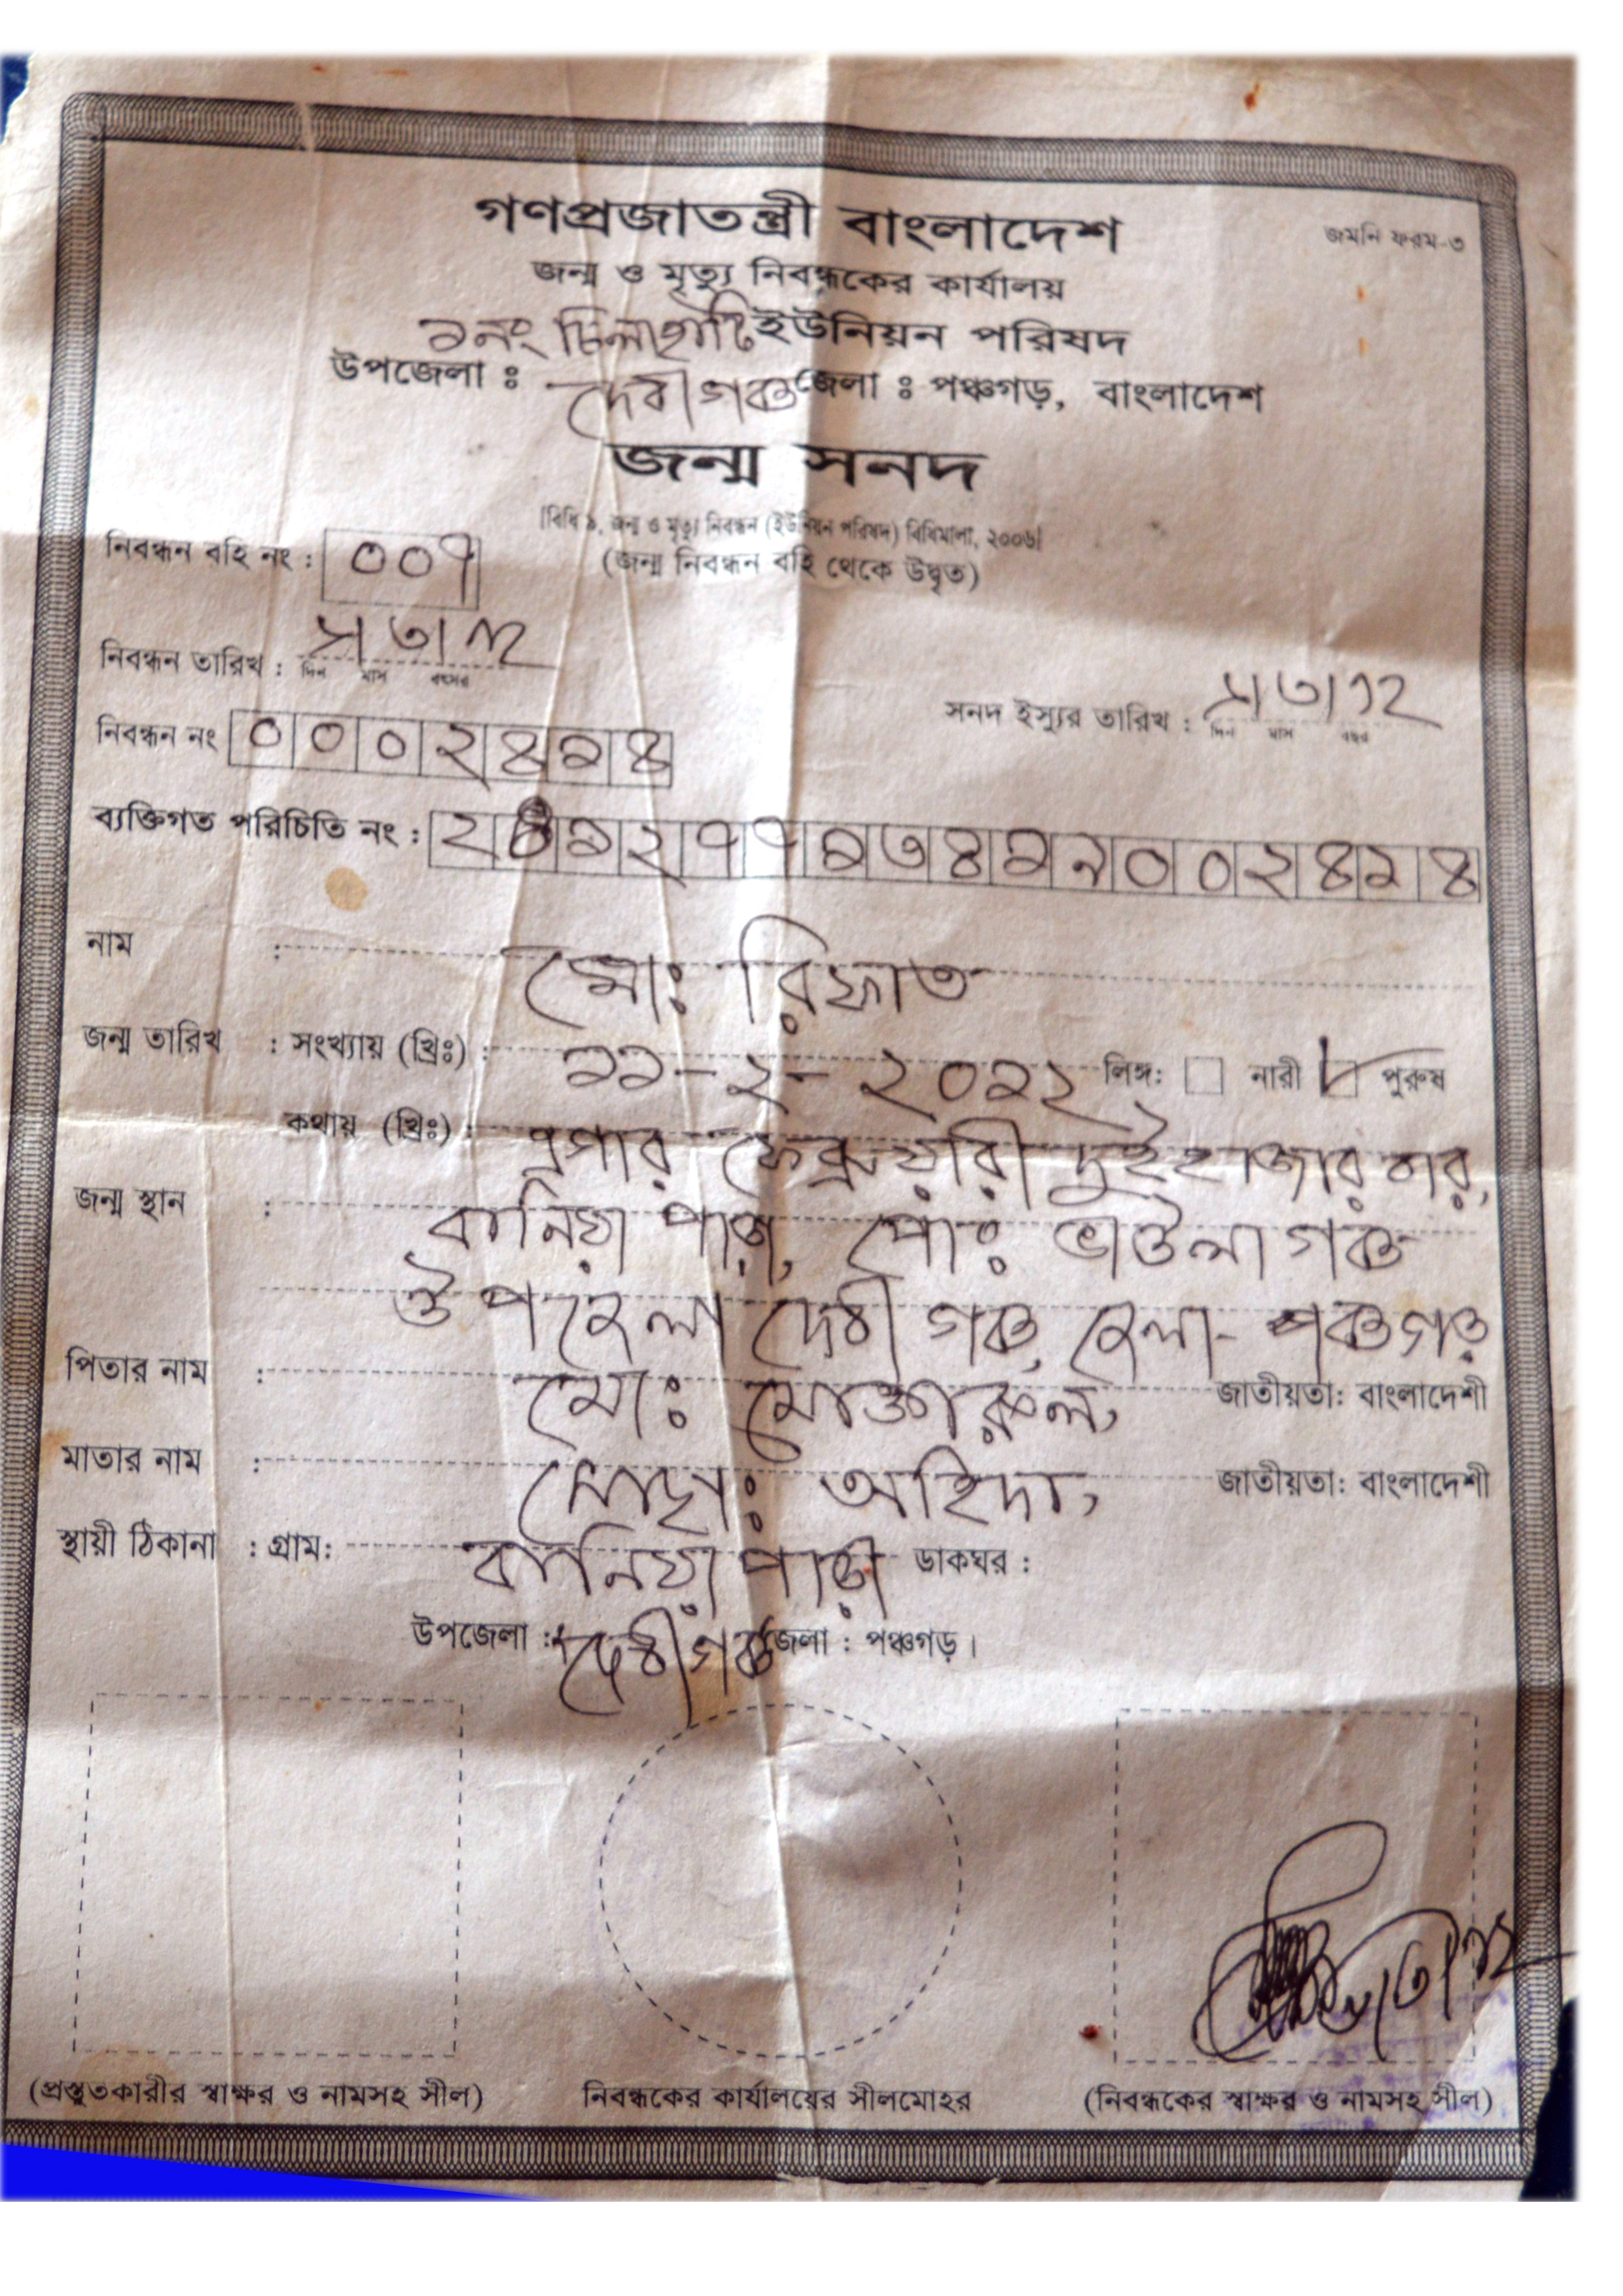 গণপ্রজাতন্ত্রী বাংলাদেশ
জমনি ফরম-৩
জন্ম ও মৃত্যু নিবন্ধকের কার্যালয়
১নং চিলাহাটি ইউনিয়ন পরিষদ
উপজেলা ঃ দেবীগঞ্জ জেলা ঃ পঞ্চগড়, বাংলাদেশ
জন্ম সনদ
[বিধি ৯, জন্ম ও মৃত্যু নিবন্ধন (ইউনিয়ন পরিষদ) বিধিমালা, ২০০৬]
(জন্ম নিবন্ধন বহি থেকে উদ্বৃত)
নিবন্ধন বহি নং : ০০৭
নিবন্ধন তারিখ :
দিন মাস বৎসর
সনদ ইস্যুর তারিখ :
দিন মাস বছর
নিবন্ধন নং ০০০২৪১৪
ব্যক্তিগত পরিচিতি নং :
নাম : মোঃ রিফাত
জন্ম তারিখ : সংখ্যায় (খ্রিঃ) : ১১-২-২০১২ লিঙ্গ: নারী পুরুষ
কথায় (খ্রিঃ) : এগার ফেব্রুয়ারী দুইহাজার বার,
জন্ম স্থান : বানিয়া পাড়া, পোঃ ভাউলাগঞ্জ
উপজেলা দেবীগঞ্জ, জেলা- পঞ্চগড়
পিতার নাম : মোঃ মোক্তারুল, জাতীয়তা: বাংলাদেশী
মাতার নাম : মোছাঃ অহিদা, জাতীয়তা: বাংলাদেশী
স্থায়ী ঠিকানা : গ্রাম: বানিয়া পাড়া ডাকঘর :
উপজেলা : দেবীগঞ্জ জেলা : পঞ্চগড়।
(প্রস্তুতকারীর স্বাক্ষর ও নামসহ সীল)
নিবন্ধকের কার্যালয়ের সীলমোহর
(নিবন্ধকের স্বাক্ষর ও নামসহ সীল)